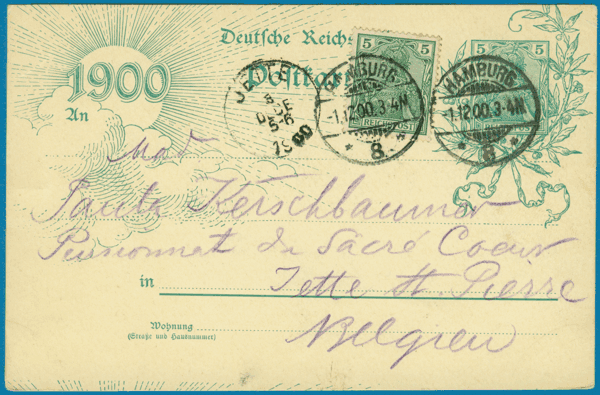 Deutsche Reichs
Postkar
1900
An
5 5
REICHSPOST
5 5
REICHSPOST
HAMBURG
1.12.00.3-4N
* 8. *
HAMBURG
1.12.00.3-4N
* 8 *
JETTE
5
DE
5-6
1900
Mad
Paula Kerschbaumer
Pensionnat du Sacré Coeur
in Jette St. Pierre
Wohnung
(Straße und Hausnummer)
Belgien